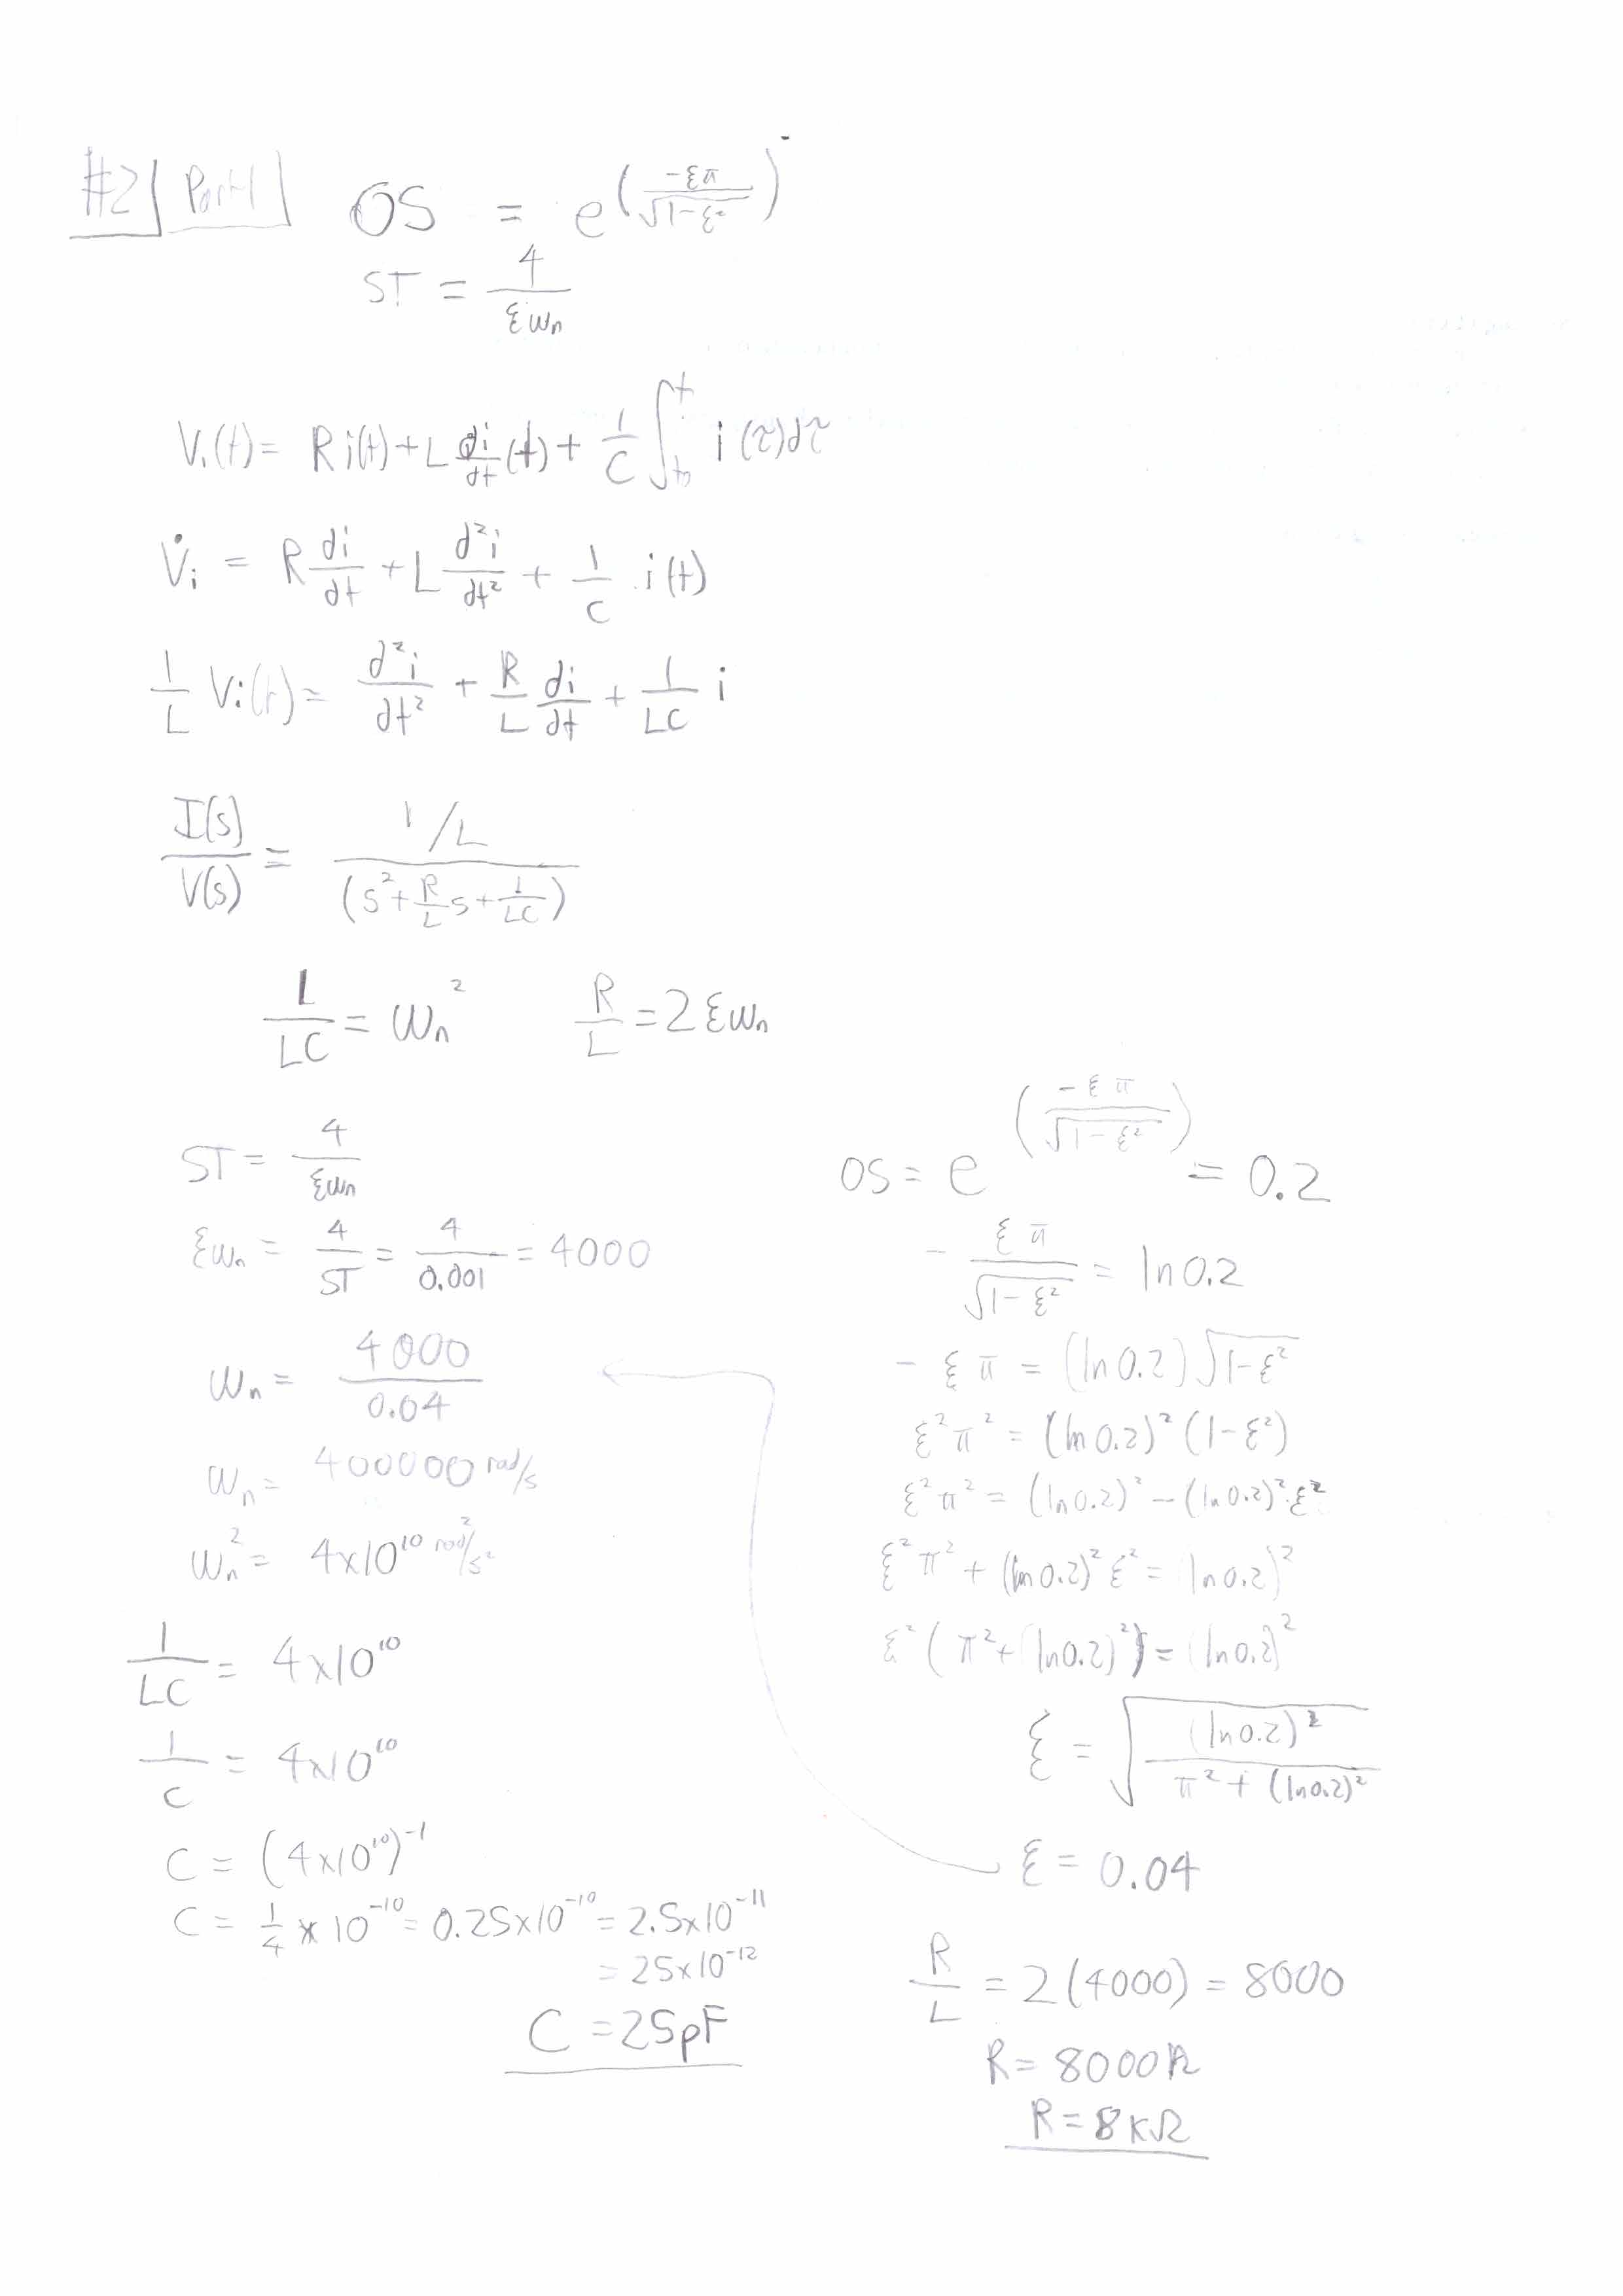 #2 Part 1 OS = e^(-ξπ/√(1-ξ²))
ST = 4/(ξωn)
Vi(t) = R i(t) + L di/dt (t) + 1/C ∫_{t0}^{t} i(τ)dτ
V̇i = R di/dt + L d²i/dt² + 1/C . i(t)
1/L Vi(t) = d²i/dt² + R/L di/dt + 1/LC i
I(s)/V(s) = (1/L)/(s² + R/L s + 1/LC)
L/LC = ωn² R/L = 2ξωn
ST = 4/(ξωn)
ξωn = 4/ST = 4/0.001 = 4000
ωn = 4000/0.04
ωn = 400000 rad/s
ωn² = 4x10^10 rad²/s²
1/LC = 4x10^10
1/C = 4x10^10
C = (4x10^10)^-1
C = 1/4 x 10^-10 = 0.25x10^-10 = 2.5x10^-11
= 25x10^-12
C = 25pF
OS = e^(-ξπ/√(1-ξ²)) = 0.2
- ξπ/√(1-ξ²) = ln0.2
- ξπ = (ln0.2)√(1-ξ²)
ξ²π² = (ln0.2)² (1-ξ²)
ξ²π² = (ln0.2)² - (ln0.2)²·ξ²
ξ²π² + (ln0.2)² ξ² = (ln0.2)²
ξ²(π² + (ln0.2)²) = (ln0.2)²
ξ = √((ln0.2)²/(π² + (ln0.2)²))
ξ = 0.04
R/L = 2(4000) = 8000
R = 8000Ω
R = 8kΩ